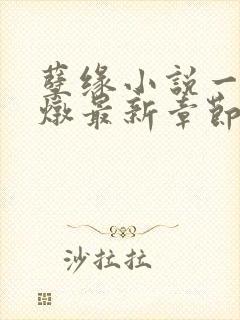 孽缘小説一
燉最新章節
沙拉拉